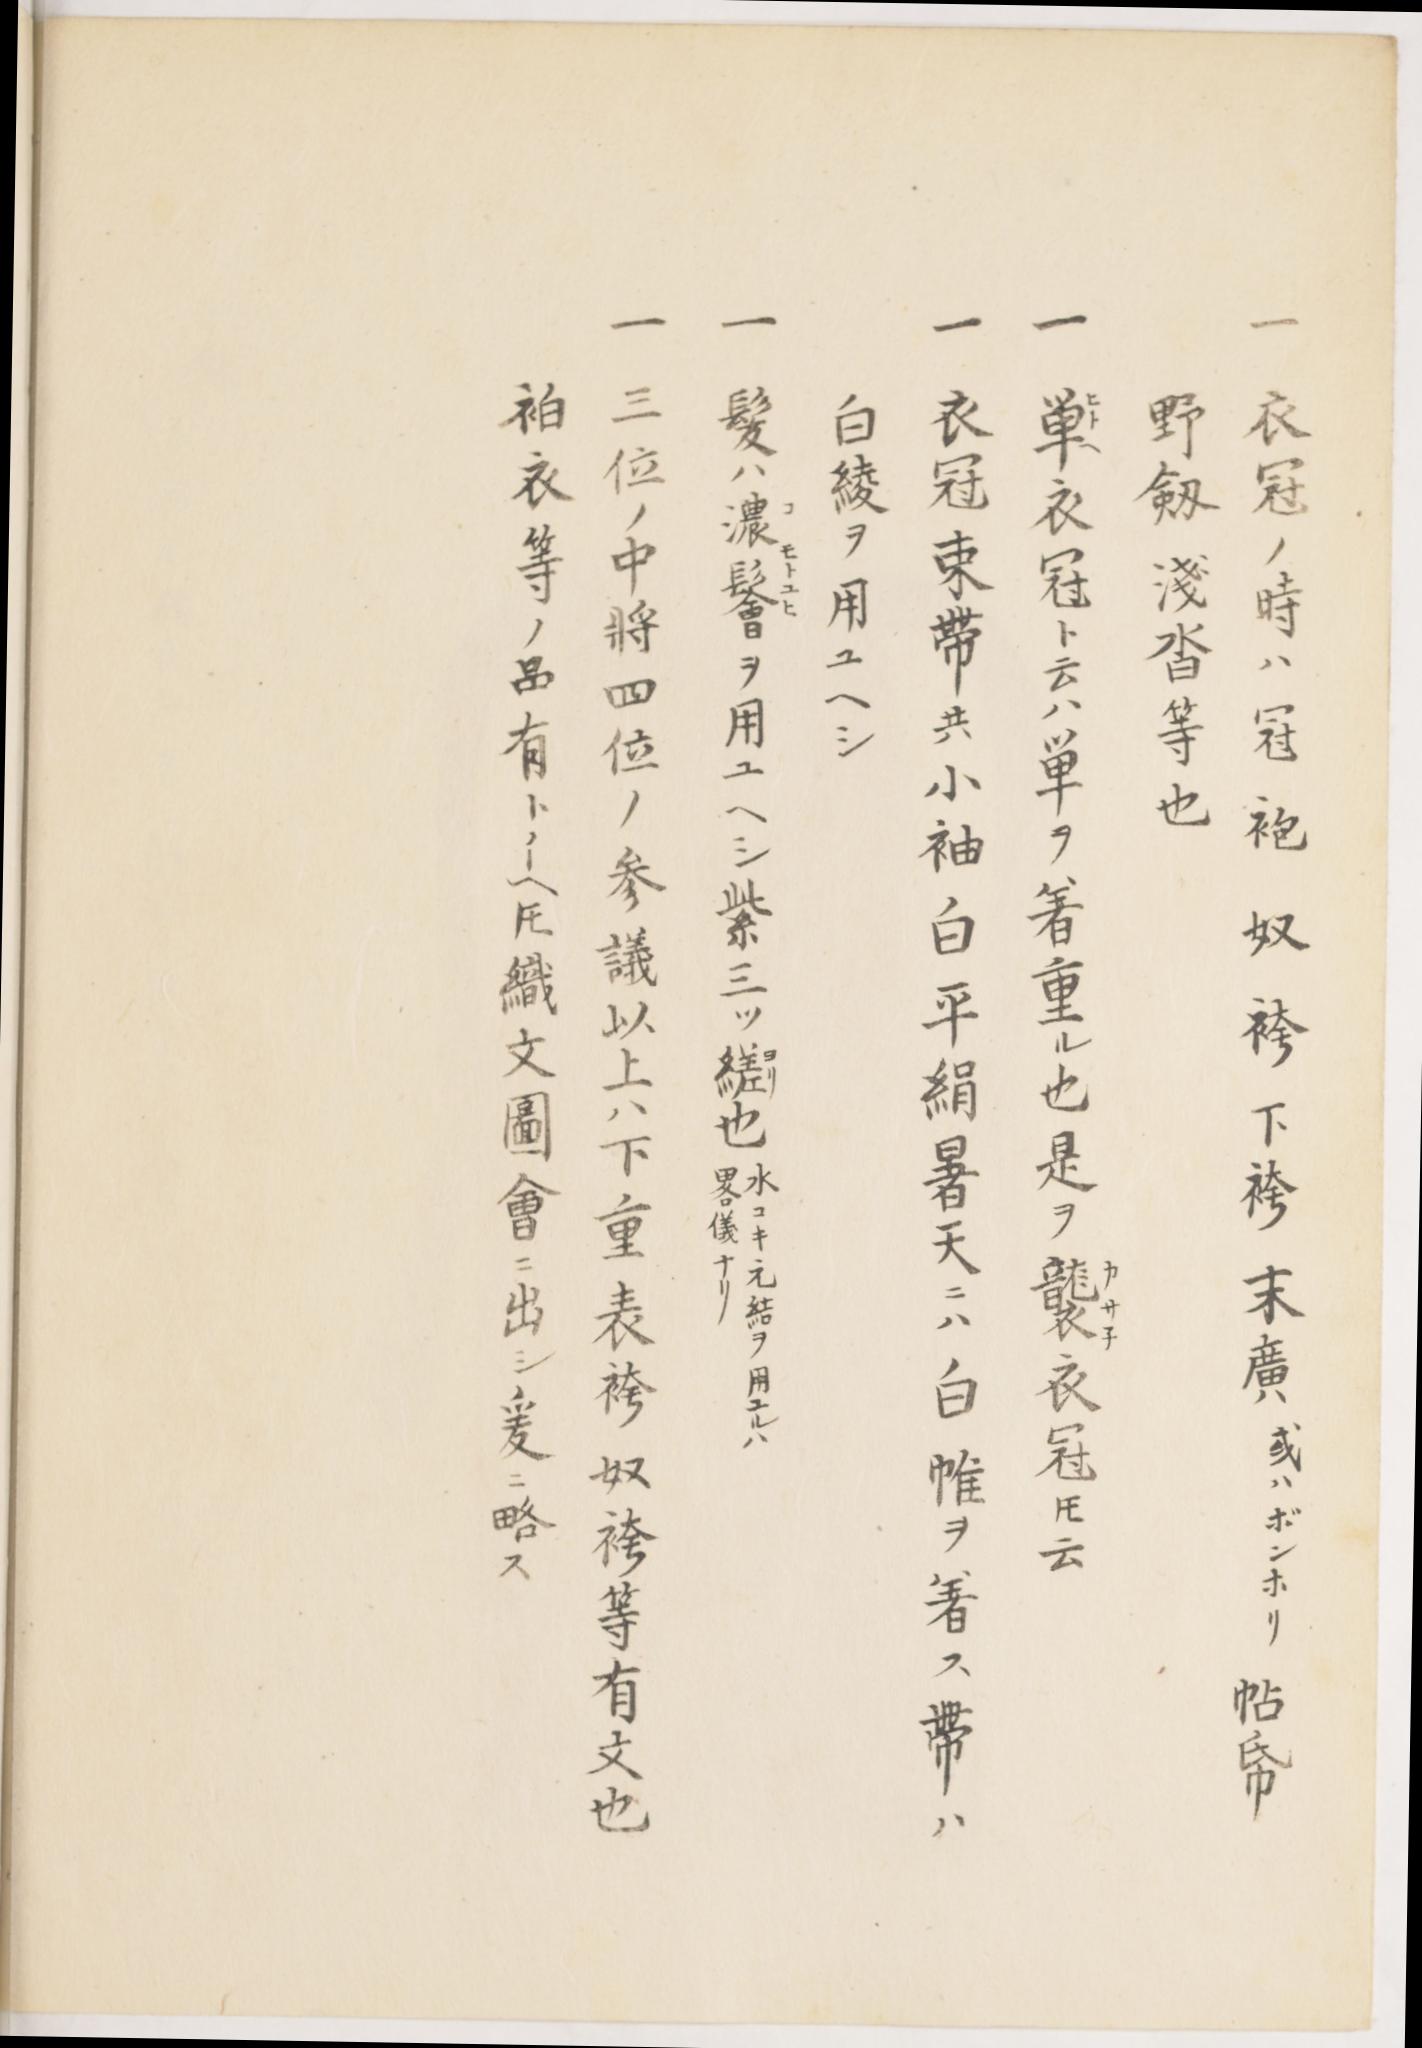 一 衣冠ノ時ハ冠 袍 奴袴 下袴 末廣ハ或ハボンホリ 帖帋
野劔 淺沓等也
一 単衣冠ト云ハ単ヲ着重ル也是ヲ襲衣冠圧云
一 衣冠束帶共小袖白平絹暑天ニハ白帷ヲ着ス帶ハ
白綾ヲ用ユヘシ
一 髪ハ濃鬠ヲ用ユヘシ紫三ツ縒也 水コキ元結ヲ用ユルハ畧儀ナリ
一 三位ノ中將四位ノ参議以上ハ下重表袴奴袴等有文也
袙衣等ノ品有トイヘ𪜈織文圖會ニ出シ爰ニ略ス